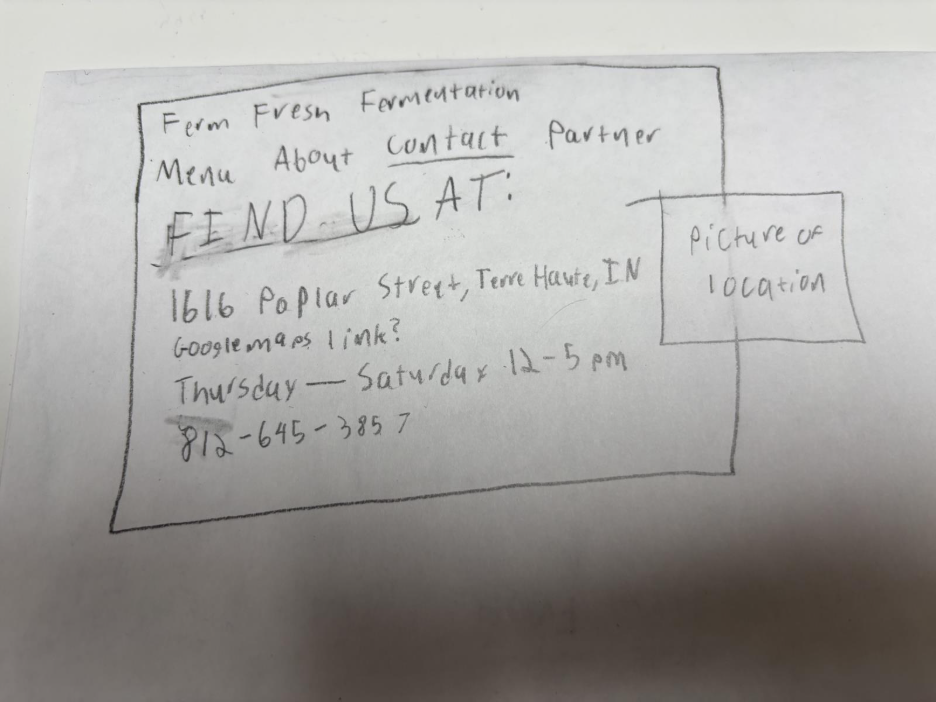 Ferm Fresh Fermentation
Menu About Contact Partner
FIND US AT:
1616 Poplar Street, Terre Haute, IN
Google maps link?
Thursday — Saturday 12-5 pm
812-645-3857
Picture of
location